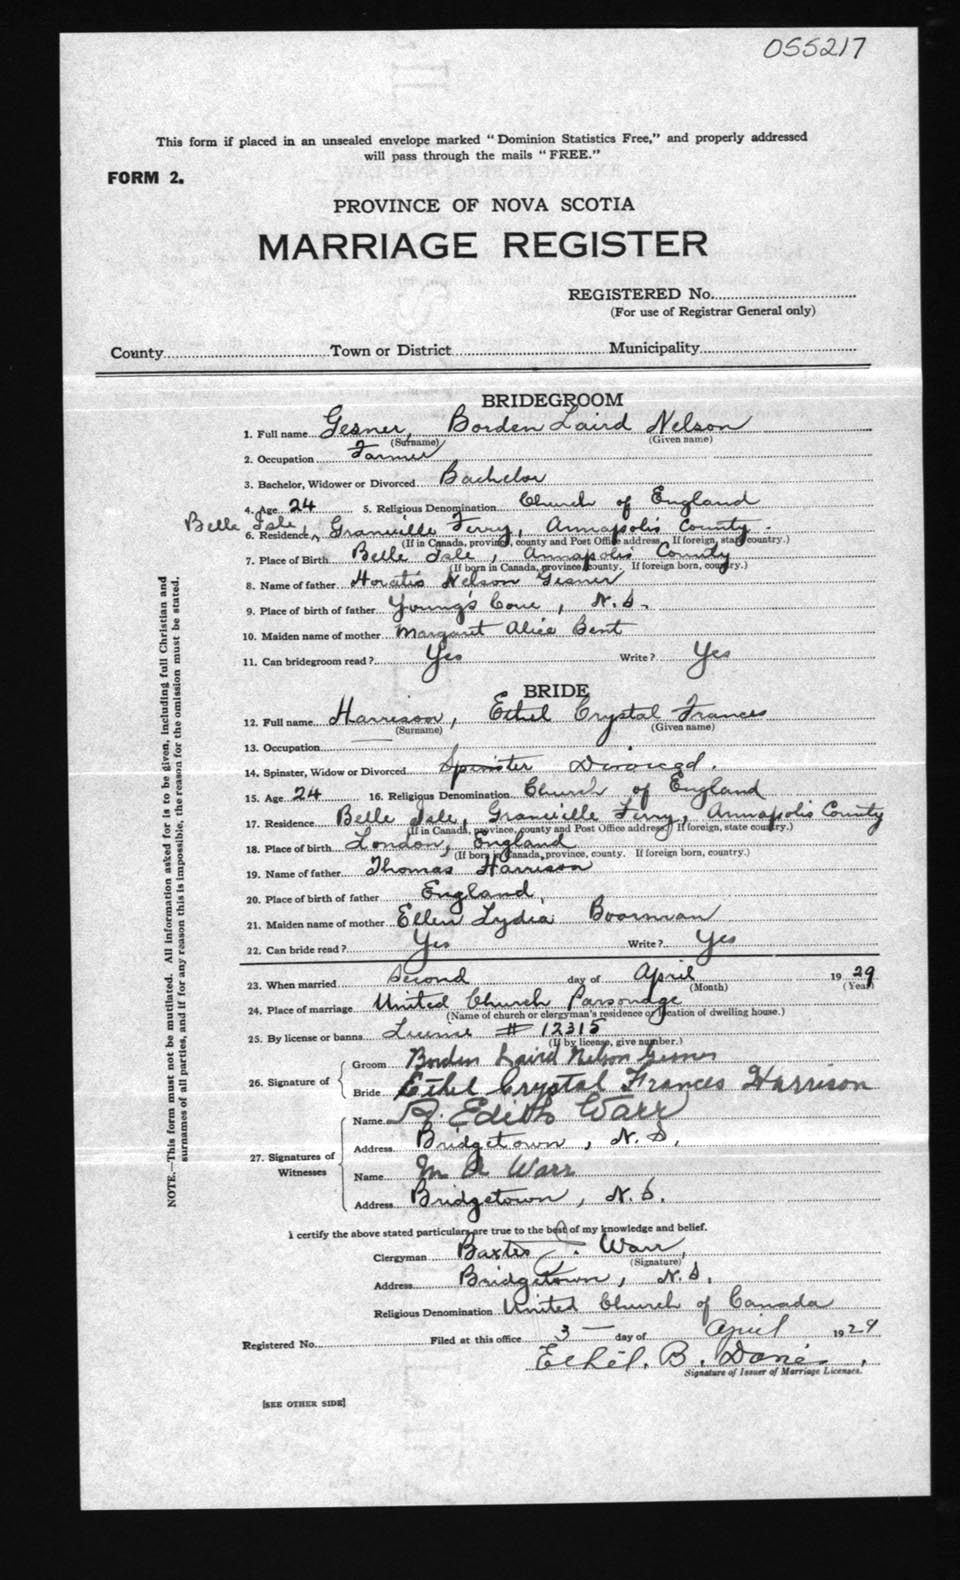 055217
This form if placed in an unsealed envelope marked "Dominion Statistics Free," and properly addressed
will pass through the mails "FREE."
FORM 2.
PROVINCE OF NOVA SCOTIA
MARRIAGE REGISTER
REGISTERED No.
(For use of Registrar General only)
County Town or District Municipality
BRIDEGROOM
1. Full name Gesner, Borden Laird Nelson
(Surname) (Given name)
2. Occupation Farmer
3. Bachelor, Widower or Divorced Bachelor
4. Age 24 5. Religious Denomination Church of England
6. Residence Belle Isle, Granville Ferry, Annapolis County.
(If in Canada, province, county and Post Office address. If foreign, state country.)
7. Place of Birth Belle Isle, Annapolis County
(If born in Canada, province, county. If foreign born, country.)
8. Name of father Horatio Nelson Gesner
9. Place of birth of father Young's Cove, N.S.
10. Maiden name of mother Margaret Alice Bent
11. Can bridegroom read? Yes Write? Yes
BRIDE
12. Full name Harrison, Ethel Crystal Frances
(Surname) (Given name)
13. Occupation
14. Spinster, Widow or Divorced Spinster Divorced.
15. Age 24 16. Religious Denomination Church of England
17. Residence Belle Isle, Granville Ferry, Annapolis County
(If in Canada, province, county and Post Office address. If foreign, state country.)
18. Place of birth London, England
(If born in Canada, province, county. If foreign born, country.)
19. Name of father Thomas Harrison
20. Place of birth of father England,
21. Maiden name of mother Ellen Lydia Boorman
22. Can bride read? Yes Write? Yes
23. When married Second day of April 1929
(Month) (Year)
24. Place of marriage United Church Parsonage
(Name of church or clergyman's residence or location of dwelling house.)
25. By license or banns License # 12315
(If by license, give number.)
26. Signature of
Groom Borden Laird Nelson Gesner
Bride Ethel Crystal Frances Harrison
27. Signatures of Witnesses
Name R. Edith Warr
Address Bridgetown, N.S.
Name M A Warr
Address Bridgetown, N.S.
I certify the above stated particulars are true to the best of my knowledge and belief.
Clergyman Baxter Warr,
(Signature)
Address Bridgetown, N.S.
Religious Denomination United Church of Canada
Registered No. Filed at this office 3 — day of April 1929
Ethel. B.
Signature of Issuer of Marriage Licenses.
[SEE OTHER SIDE]
NOTE.—This form must not be mutilated. All information asked for is to be given, including full Christian and
surnames of all parties, and if for any reason this is impossible, the reason for the omission must be stated.